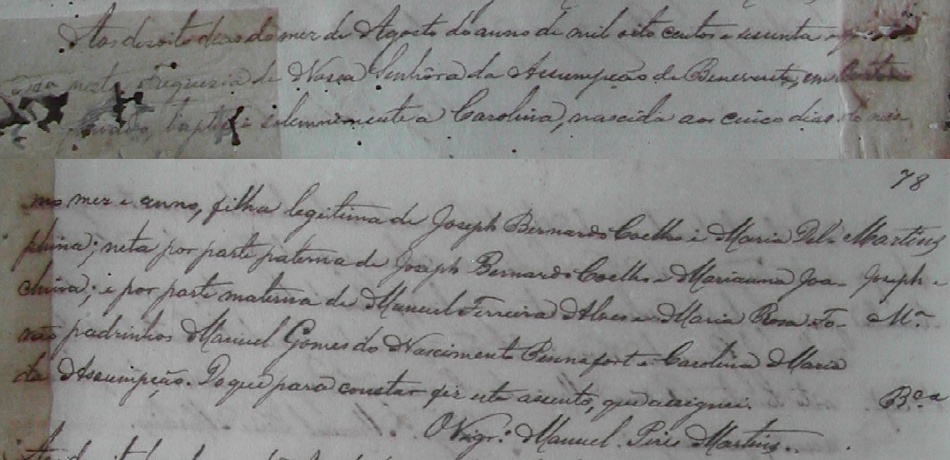 Aos dezoito dias do mez de Agosto do anno de mil oito centos e sesenta e
nesta Freguezia de Nossa Senhôra da Assumpção de Benevente, em
baptizei solemnemente a Carolina, nascida aos cinco dias do mes
78
mo mez e anno, filha legitima de Joseph Bernardo Coelho e Maria Del- Martins
phina; neta por parte paterna de Joseph Bernardo Coelho e Marianna Joa- Joseph
china; e por parte materna de Manuel Ferreira Alves e Maria Rosa. Fo- Mª
rão padrinhos Manuel Gomes do Nascimento Pennafort e Carolina Maria
da Assumpção. Do que para constar fiz este assento, que assignei. Bca
O Vigrº Manuel Pires Martins.